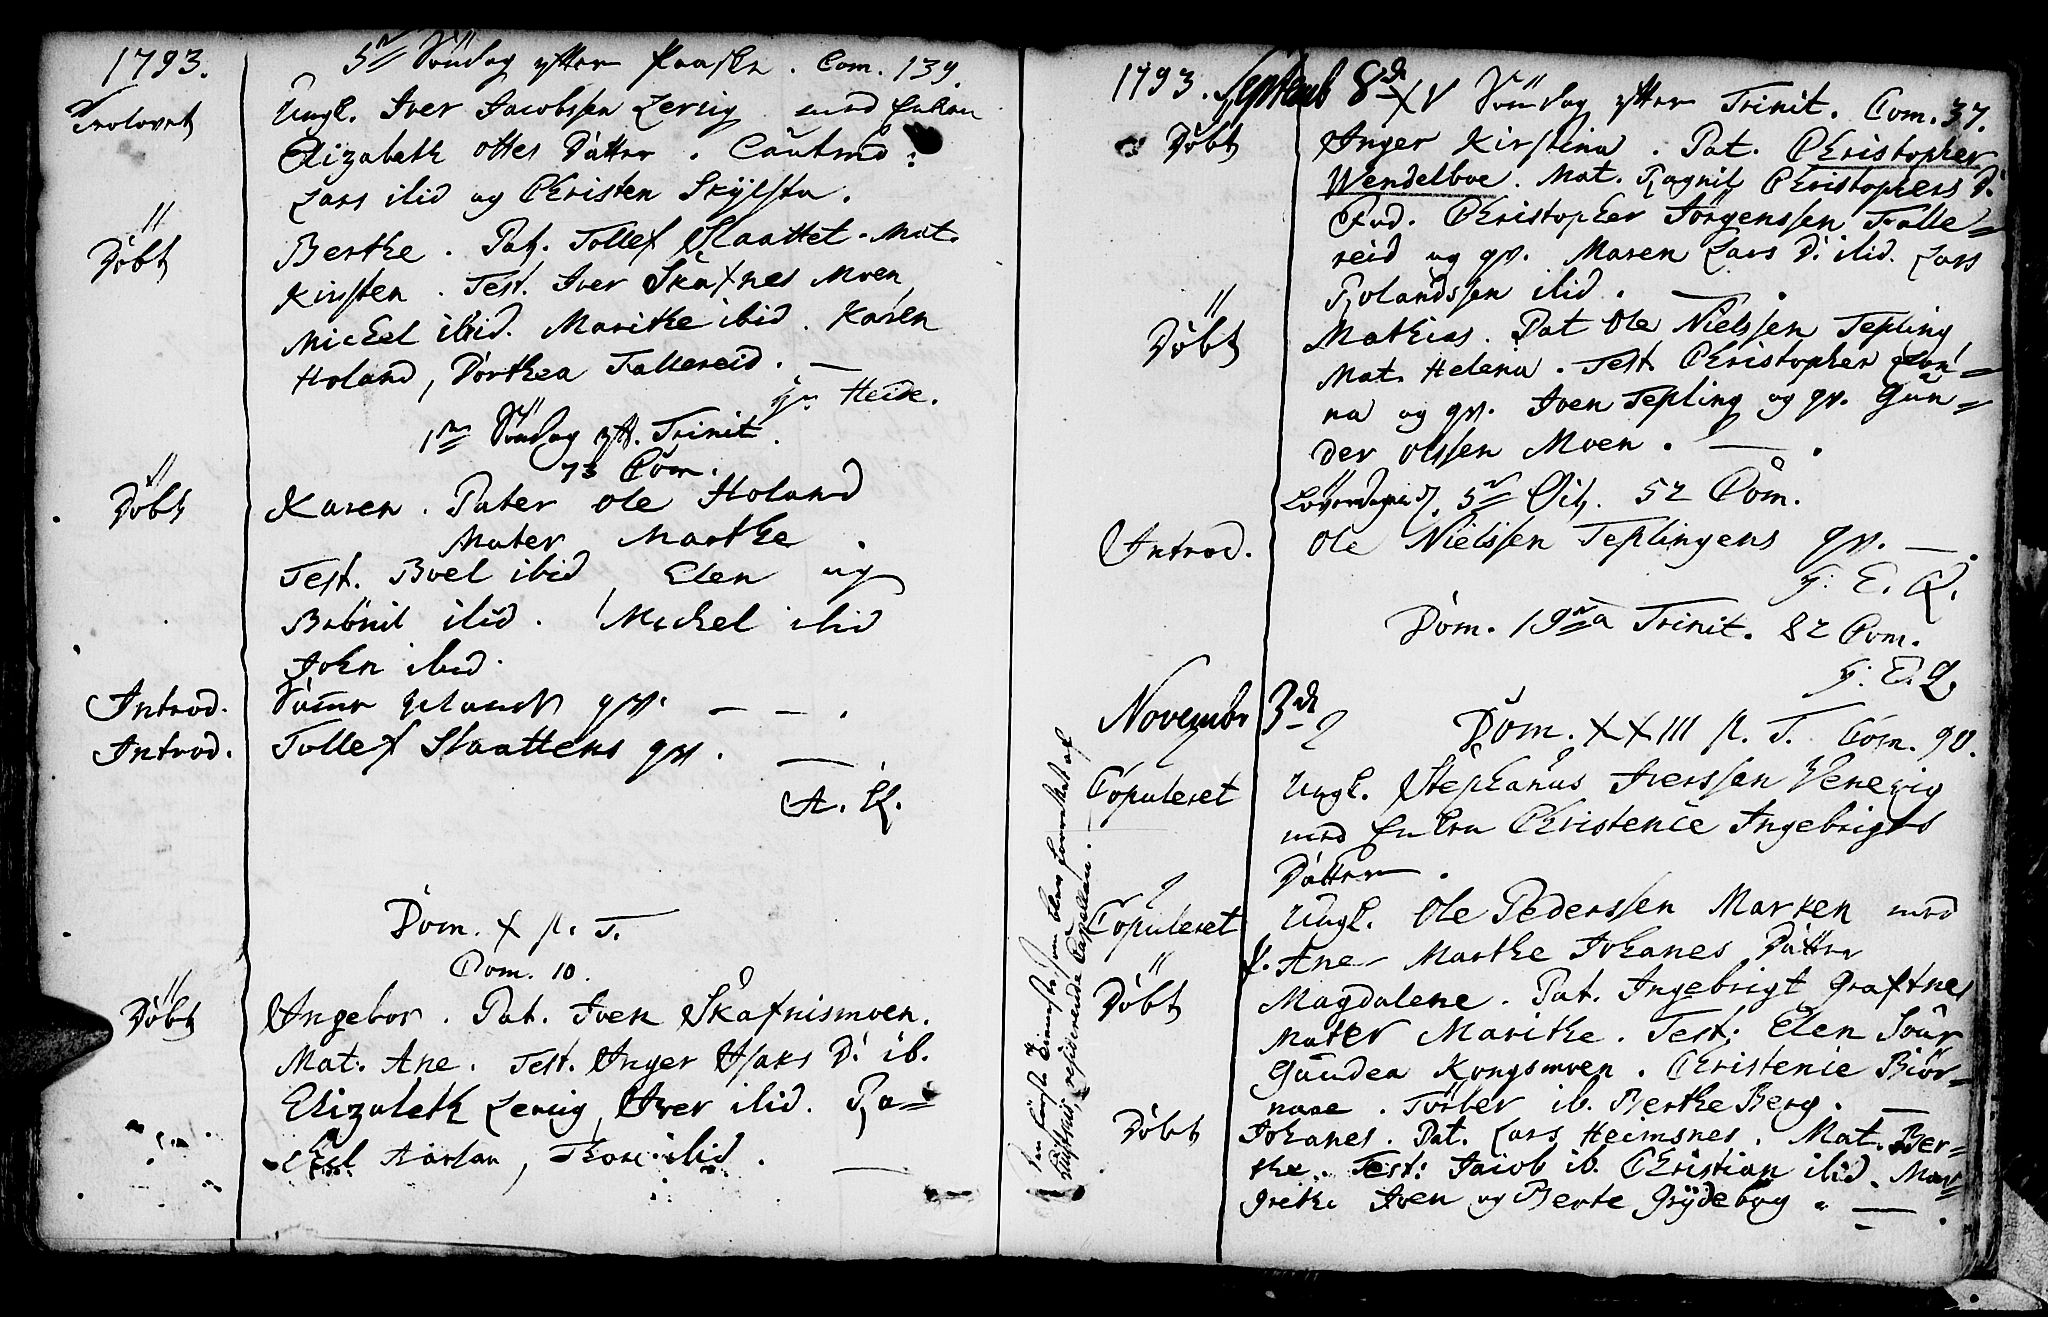 1793.
5te Søndag efter Paaske. Com. 139.
Trolovet
Ungk. Iver Jacobssen Lerviig med Enken
Elizabeth Ottes Datter. Cautend:
Lars ibid og Christen Skylsta.
Døbt
Berthe. Pat. Tollef Slaattet. Mat.
Kirsten. Test. Iver Skafnes Moen
Michel ibid. Marithe ibid. Karen
Holand, Dorthea Fallereid. —
Heide.
1te Søndag eft. Trinit.
73 Com.
Døbt
Karen. Pater Ole Holand
Mater Marthe.
Test. Boel ibid Elen og
ibid. Michel ibid
John ibid.
Introd.
qv. — —.
Introd.
Tollef Slaattens qv. —
A. K.
Dom. X p. T.
Com. 10.
Døbt
Ingebor. Pat. Iven Skafnismoen.
Mat. Ane. Test. Inger Isaks D. ib.
Elizabeth Lerviig, Iver ibid. Ra=
ibid. —
1793. Septemb 8de XV Søndag efter Trinit. Com. 37.
Døbt
Inger Kirstina. Pat. Christopher
Wendelboe. Mat. Ragnil Christophers D.
Fad. Christopher Jørgenssen Falle=
reid og qv. Maren Lars D. ibid. Lars
Rolandssen ibid. —.
Døbt
Mathias. Pat Ole Nielssen Tepling
Mat. Helena. Test. Christopher
na og qv. Iven Tepling og qv. Gun=
der Olssen Moen. —.
Løverdagen d. 5te Oct. 52 Com.
Introd.
Ole Nielssen Teplingens qv. —.
H. E. K.
Dom. 19na Trinit. 82 Com.
H. E. K.
Novembr 3de
Dom. XXIII p. T. Com. 90.
Copuleret
Ungk. Stephanus Iverssen Veneviig
med Enken Christencie Ingebrigts
Datter.
Copuleret
Ungk. Ole Pederssen Marken med
P. Ane Marthe Johanes Datter
Døbt
Magdalene. Pat. Ingebrigt Grafnes
Mater Marithe. Test. Elen
Gundea Kongsmoen. Christencie Biør=
nare. Torber ib. Berthe Berg. —
Døbt
Johanes. Pat. Lars Heimsnes. Mat. Ber=
the. Test: Jacob ib. Christian ibid. Mar=
grethe Iven og Berte Grydebog. —.
Den første Tieneste som blev forrettet af
residerende Capellan. —